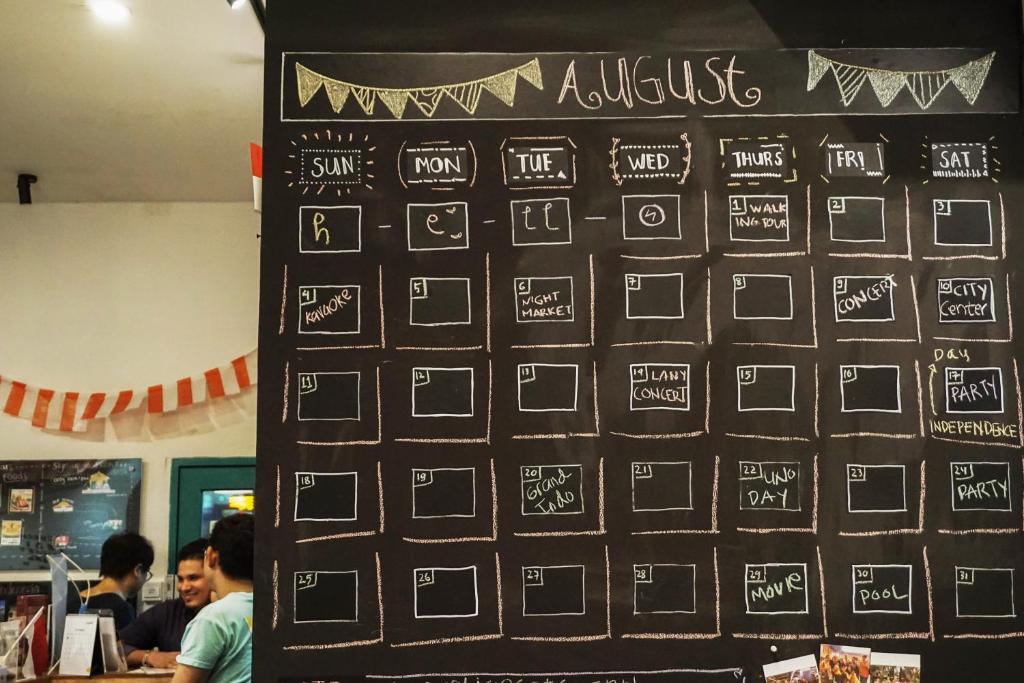 AUGUST
SUN MON TUE WED THURS FRI SAT
h - e - ll - o 1 WALK 2 3
ING TOUR
4 5 6 7 8 9 10 CITY
KARAOKE NIGHT CONCERT Center
MARKET
Day
11 12 13 14 LANY 15 16 17
CONCERT PARTY
INDEPENDENCE
18 19 20 21 22 UNO 23 24
Grand DAY PARTY
Indo
25 26 27 28 29 30 31
MOVIE POOL